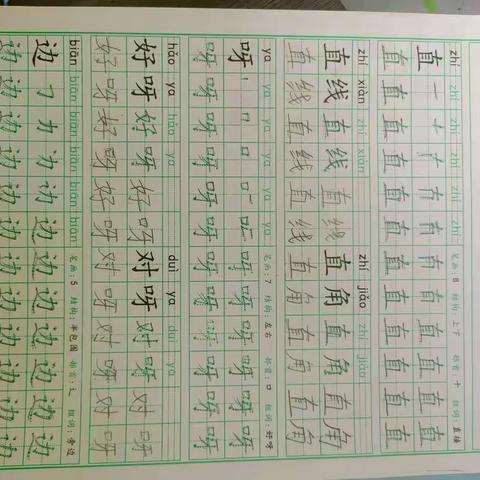 zhí zhí zhí zhí zhí 笔画：8 结构：上下 部首：十 组词：直接
直 一 十 直 直 直 直 直
直 直 直 直 直 直 直 直 直 直 直 直
zhí xiàn zhí xiàn zhí jiǎo zhí jiǎo
直 线 直 线 直 线 直 角 直 角 直 角
直 线 直 线 直 线 直 角 直 角 直 角
ya ya ya ya ya 笔画：7 结构：左右 部首：口 组词：好呀
呀 丨 口 口 呀 呀 呀 呀 呀
呀 呀 呀 呀 呀 呀 呀 呀 呀 呀 呀 呀
hǎo ya hǎo ya duì ya duì ya
好 呀 好 呀 好 呀 对 呀 对 呀 对 呀
好 呀 好 呀 好 呀 对 呀 对 呀 对 呀
biān biān biān biān biān 笔画：5 结构：半包围 部首：辶 组词：旁边
边 ㇆ 力 边 边 边 边 边 边 边
边 边 边 边 边 边 边 边 边 边 边 边